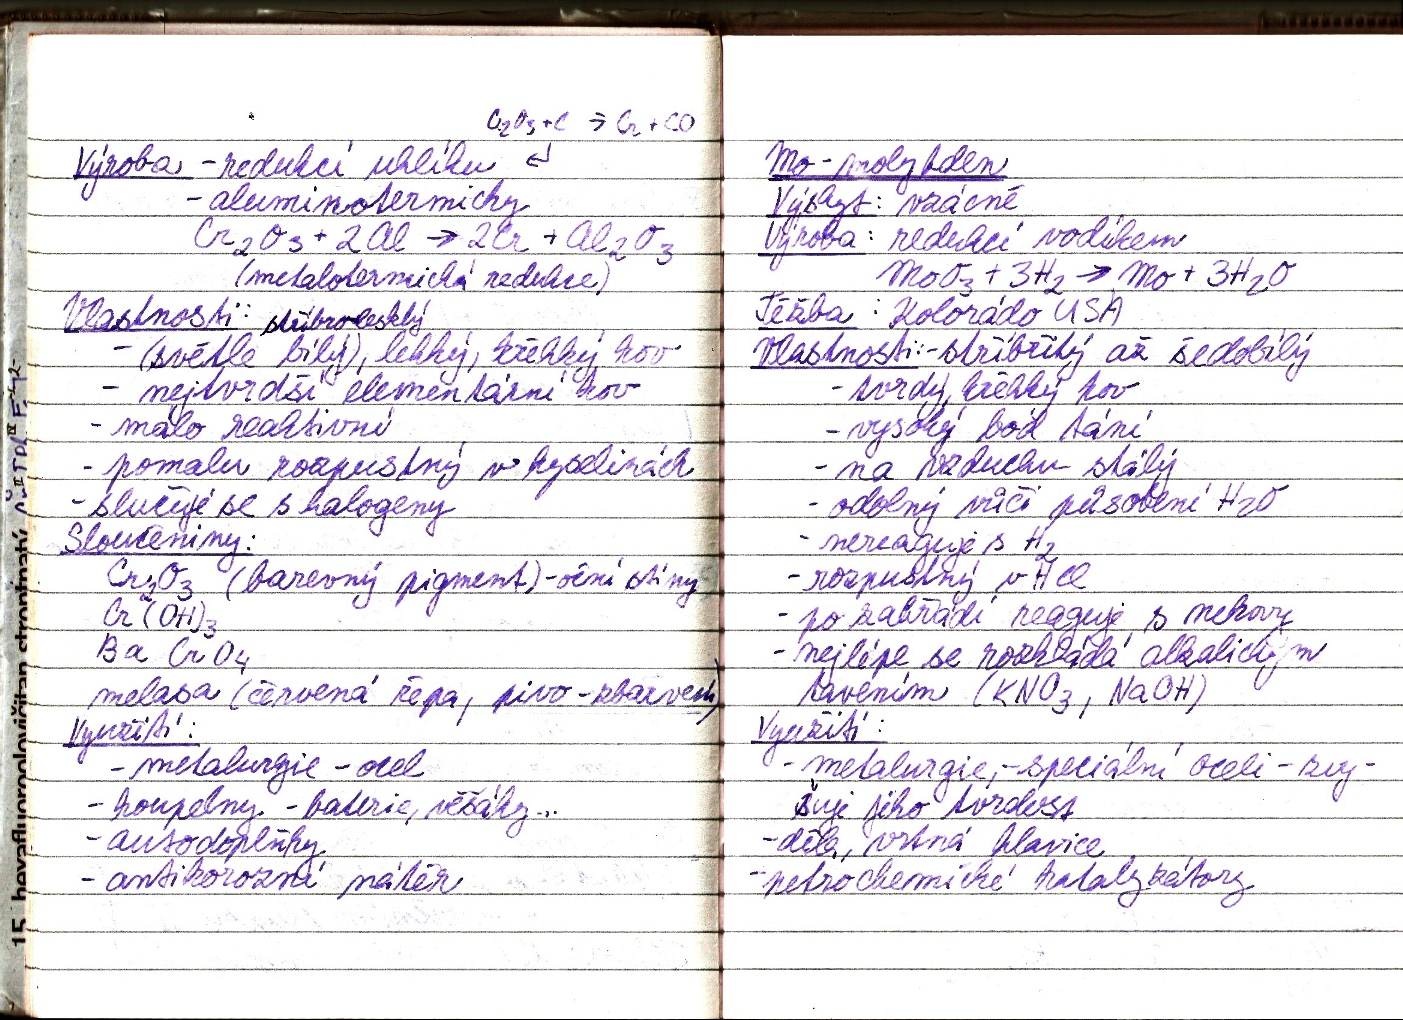 Cr₂O₃ + C → Cr + CO
Výroba - redukcí uhlíku ↵
- aluminotermicky
Cr₂O₃ + 2Al → 2Cr + Al₂O₃
(metalotermická redukce)
Vlastnosti: stříbrolesklý
- (světle bílý), lehký, křehký kov
- nejtvrdší elementární kov
- málo reaktivní
- pomalu rozpustný v kyselinách
- slučuje se s halogeny
Sloučeniny:
Cr₂O₃ (barevný pigment) - oční stíny
Cr(OH)₃
BaCrO₄
melasa (červená řepa, pivo - zbarvení)
Využití:
- metalurgie - ocel
- koupelny - baterie, věšáky...
- autodoplňky
- antikorozní nátěr
Mo - molybden
Výskyt: vzácně
Výroba: redukcí vodíkem
MoO₃ + 3H₂ → Mo + 3H₂O
Těžba: Kolorádo USA
Vlastnosti: - stříbřitý až šedobílý
- tvrdý, křehký kov
- vysoký bod tání
- na vzduchu stálý
- odolný vůči působení H₂O
- nereaguje s H₂
- rozpustný v HCl
- po zahřátí reaguje s nekovy
- nejlépe se rozkládá alkalickým
tavením (KNO₃, NaOH)
Využití:
- metalurgie, - speciální oceli - zvy-
šuje jeho tvrdost
- děla, vrtná hlavice
- petrochemické katalyzátory
15 hexafluoropolovičitan strontnatý